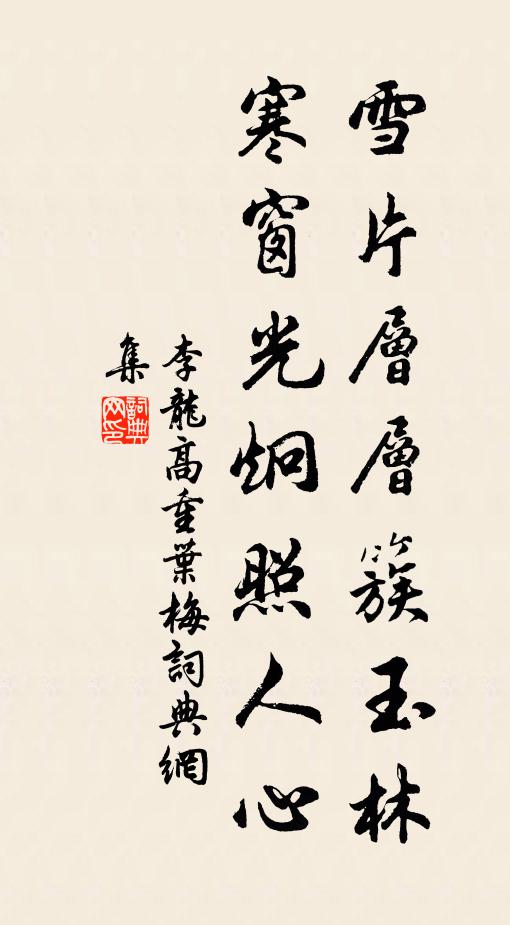 雪片層層簇玉林
寒窗光炯照人心
李龍高重葉梅詞典網
集
詞典網印